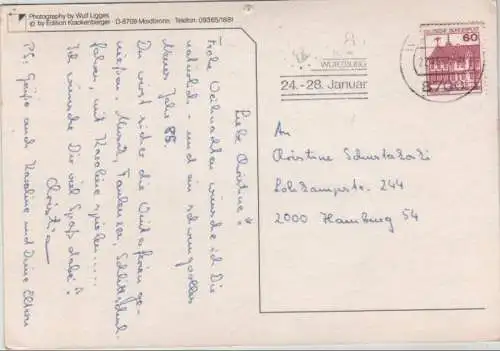 Photography by Wulf Ligges
© by Edition Krackenberger · D-8709 Riedbronn, Telefon: 09365/1681
Liebe Christine!
Frohe Weihnachten wünsche ich Dir
natürlich - und ein schwungvolles
Neues Jahr 88.
Du wirst sicher die Winterferien ge-
niessen. Musik, Faulenzen, Schlittschuh-
fahren, mit Karoline spielen.....
Ich wünsche Dir viel Spaß dabei!
Christian
PS. Grüße auch Karoline und Deine Eltern
WÜRZBURG
24.-28. Januar
DEUTSCHE BUNDESPOST
60
8700
An
Christine
244
2000 Hamburg 54